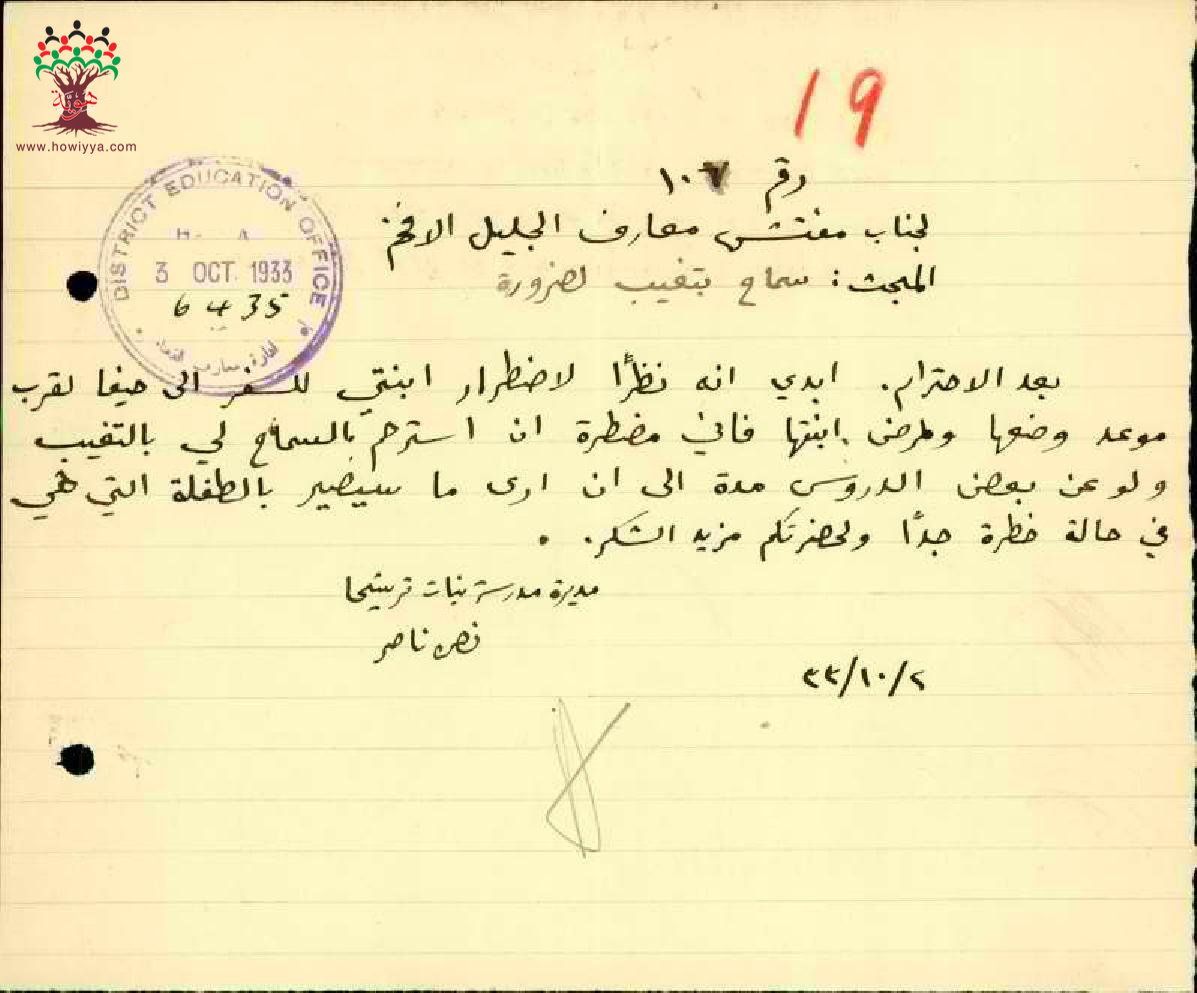 هوية
www.howiyya.com
19
رقم ١٠٦
لجناب مفتش معارف الجليل الافخم
المبحث: سماح بتغيب لضرورة
DISTRICT EDUCATION OFFICE
3 OCT. 1933
6435
بعد الاحترام. ابدي انه نظرًا لاضطرار ابنتي للسفر الى حيفا لقرب
موعد وضعها ولمرض ابنتها فاني مضطرة ان استرحم بالسماح لي بالتغيب
ولو عن بعض الدروس مدة الى ان ارى ما سيصير بالطفلة التي هي
في حالة خطرة جدًا ولحضرتكم مزيد الشكر.
مديرة مدرسة بنات ترشيحا
ناصر
٣٣/١٠/٢